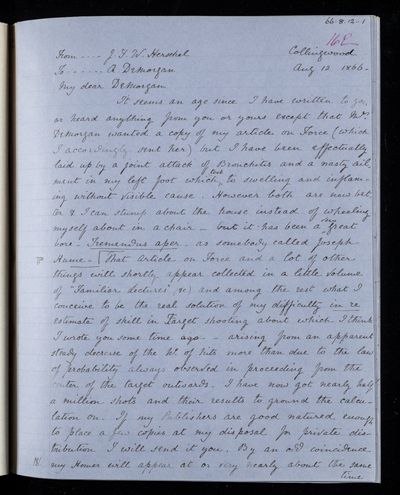 66·8·12·1
168
From --- J. F. W. Herschel
Collingwood
To ------ A DeMorgan
Aug 12 1866-
My dear DeMorgan
It seems an age since I have written to you,
or heard anything from you or yours except that Mrs.
DeMorgan wanted a copy of my article on Force (which
I accordingly sent her) but I have been effectually
laid up by a joint attack of Bronchitis and a nasty ail
ment in my left foot which took to swelling and inflam-
ing without visible cause. However both are now bet
ter & I can stump about the house instead of wheeling
myself about in a chair - but it has been a great
bore - Tremandus aper - as somebody called Joseph
P Hume - [That article on Force and a lot of other
things will shortly appear collected in a little volume
of "Familiar Lectures" &c) and among the rest what I
conceive to be the real solution of my difficulty in re
estimate of skill in Target shooting about which I think
I wrote you some time ago - arising from an apparent
steady decrease of the No. of hits more than due to the law
of probability always observed in proceeding from the
center of the target outwards. I have now got nearly half
a million shots and their results to ground the calcu-
lation on. If my Publishers are good natured enough
to place a few copies at my disposal for private dis-
tribution I will send it you. By an odd coincidence
my Homer will appear at or very nearly about the same
time